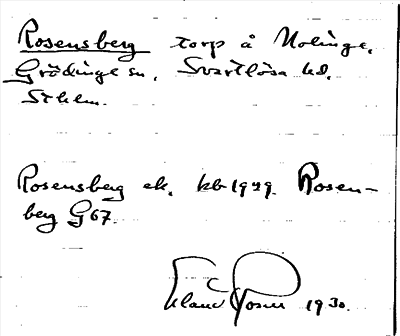 Rosensberg torp å Nolinge,
Grödinge sn, Svartlösa hd,
Sthlm.
Rosensberg ek. kb 1929. Rosen-
berg G 67.
1930.